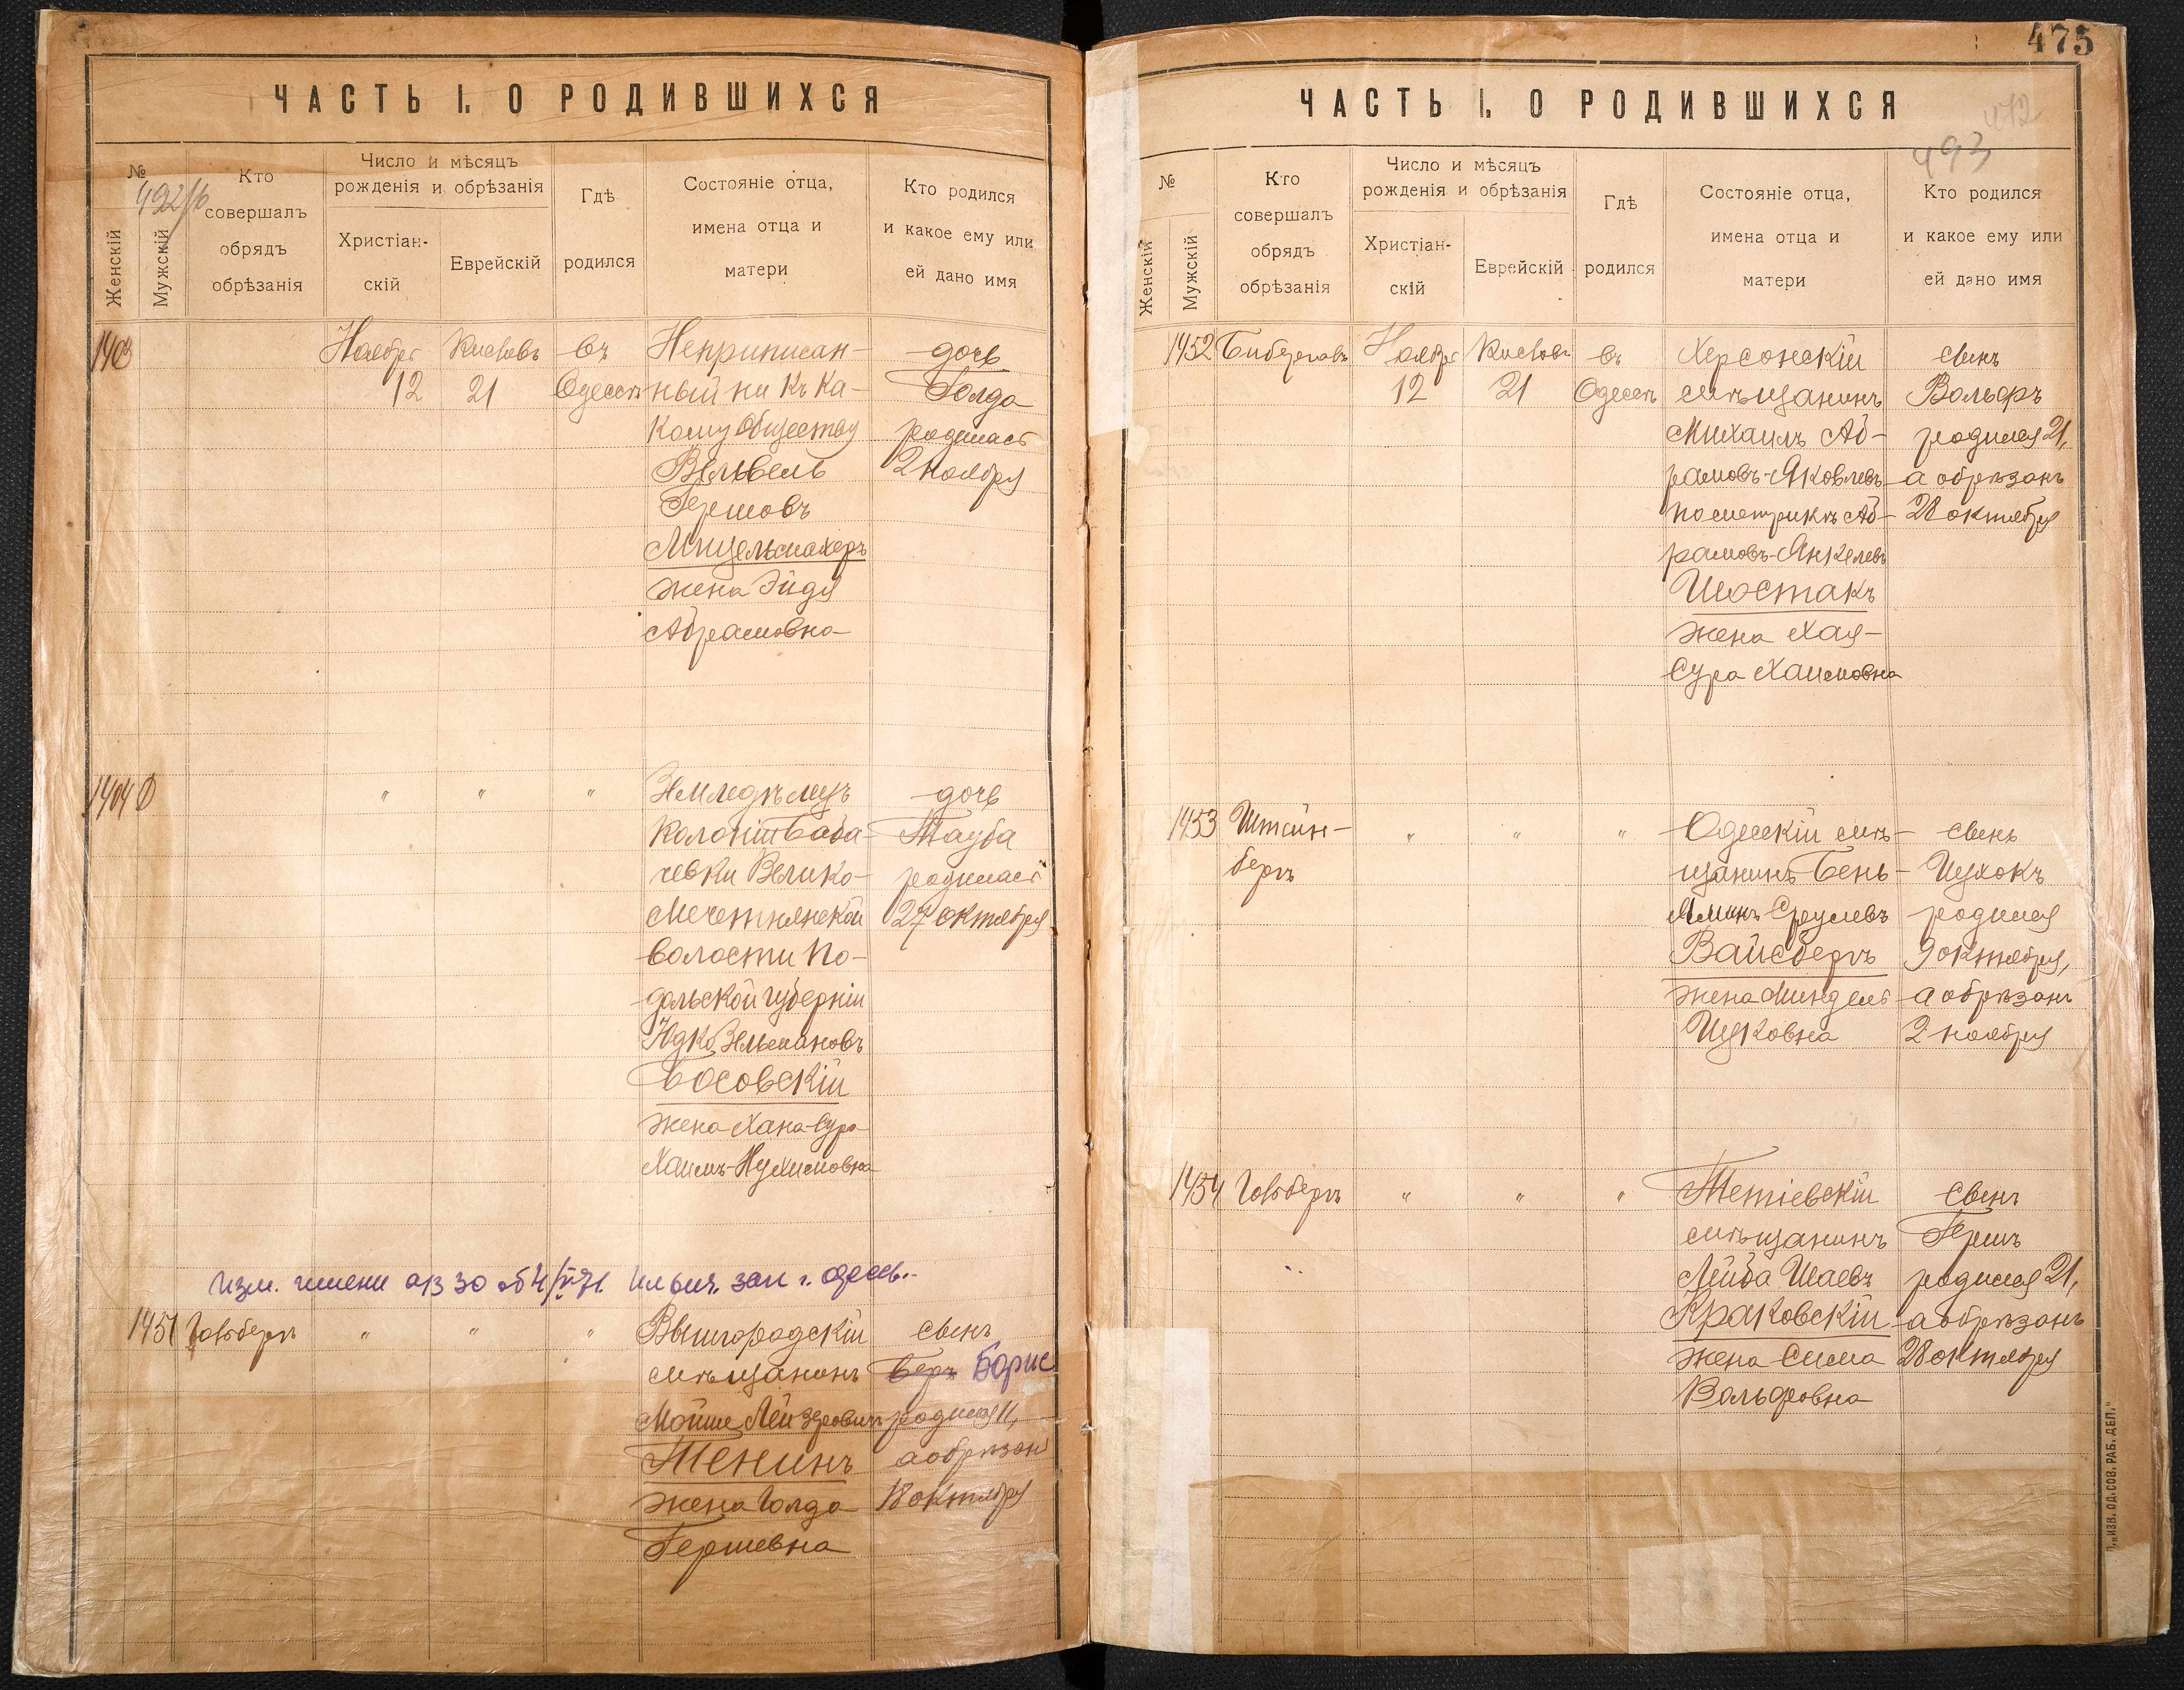 ЧАСТЬ I. О РОДИВШИХСЯ
№
Женскій
Мужскій
Кто
совершалъ
обрядъ
обрѣзанія
Число и мѣсяцъ
рожденія и обрѣзанія
Христіан-
скій
Еврейскій
Гдѣ
родился
Состояніе отца,
имена отца и
матери
Кто родился
и какое ему или
ей дано имя
1403
Ноября
12
Кислевъ
21
въ
Одессѣ
Неприписан-
ный ни къ ка-
кому обществу
Вельвель
Гершовъ
Мицельмахеръ
жена Эйдя
Абрамовна
дочь
Голда
родилась
2 ноября
1404
"
"
"
Земледѣлецъ
колоніи Баба-
чевки Велико-
Мечетнянской
волости По-
дольской губерніи
Юдко Зельмановъ
Босовскій
жена Хана-Сура
Хаимъ-Нухимовна
дочь
Тауба
родилась
27 октября
Изм. имени
1451
Говбергъ
"
"
"
Вышгородскій
мѣщанинъ
Мойше Лейзеровичъ
Тенинъ
жена Голда
Гершевна
сынъ
Беръ Борис
родился 11,
а обрѣзан
18 октября
475
472
493
ЧАСТЬ I. О РОДИВШИХСЯ
№
Женскій
Мужскій
Кто
совершалъ
обрядъ
обрѣзанія
Число и мѣсяцъ
рожденія и обрѣзанія
Христіан-
скій
Еврейскій
Гдѣ
родился
Состояніе отца,
имена отца и
матери
Кто родился
и какое ему или
ей дано имя
1452
Ноября
12
Кислевъ
21
въ
Одессѣ
Херсонскій
мѣщанинъ
Михаилъ Аб-
рамовъ-Яковлевъ
по метрикѣ Аб-
рамовъ-Янкелевъ
Шостакъ
жена Хая-
Сура Хаимовна
сынъ
Вольфъ
родился 21,
а обрѣзанъ
28 октября
1453
Штейн-
бергъ
"
"
"
Одесскій мѣ-
щанинъ Бень-
яминъ Срулевъ
Вайсбергъ
жена Миндель
Ицковна
сынъ
Ицхокъ
родился
9 октября,
а обрѣзанъ
2 ноября
1454
Говбергъ
"
"
"
Тетіевскій
мѣщанинъ
Лейба Шаевъ
Краковскій
жена Сима
Вольфовна
сынъ
Гершъ
родился 21,
а обрѣзанъ
28 октября
"ИЗВ. ОД. СОВ. РАБ. ДЕП."